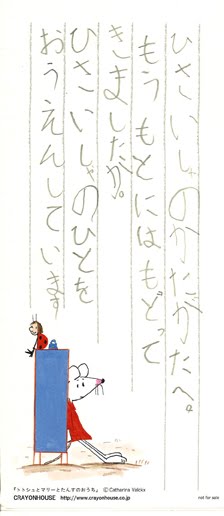 ひさいしゃのかたがたへ。
もうもとにはもどって
きましたか。
ひさいしゃのひとを
おうえんしています
『トトシュとマリーとたんすのおうち』 ©Catharina Valckx
CRAYONHOUSE http://www.crayonhouse.co.jp
not for sale